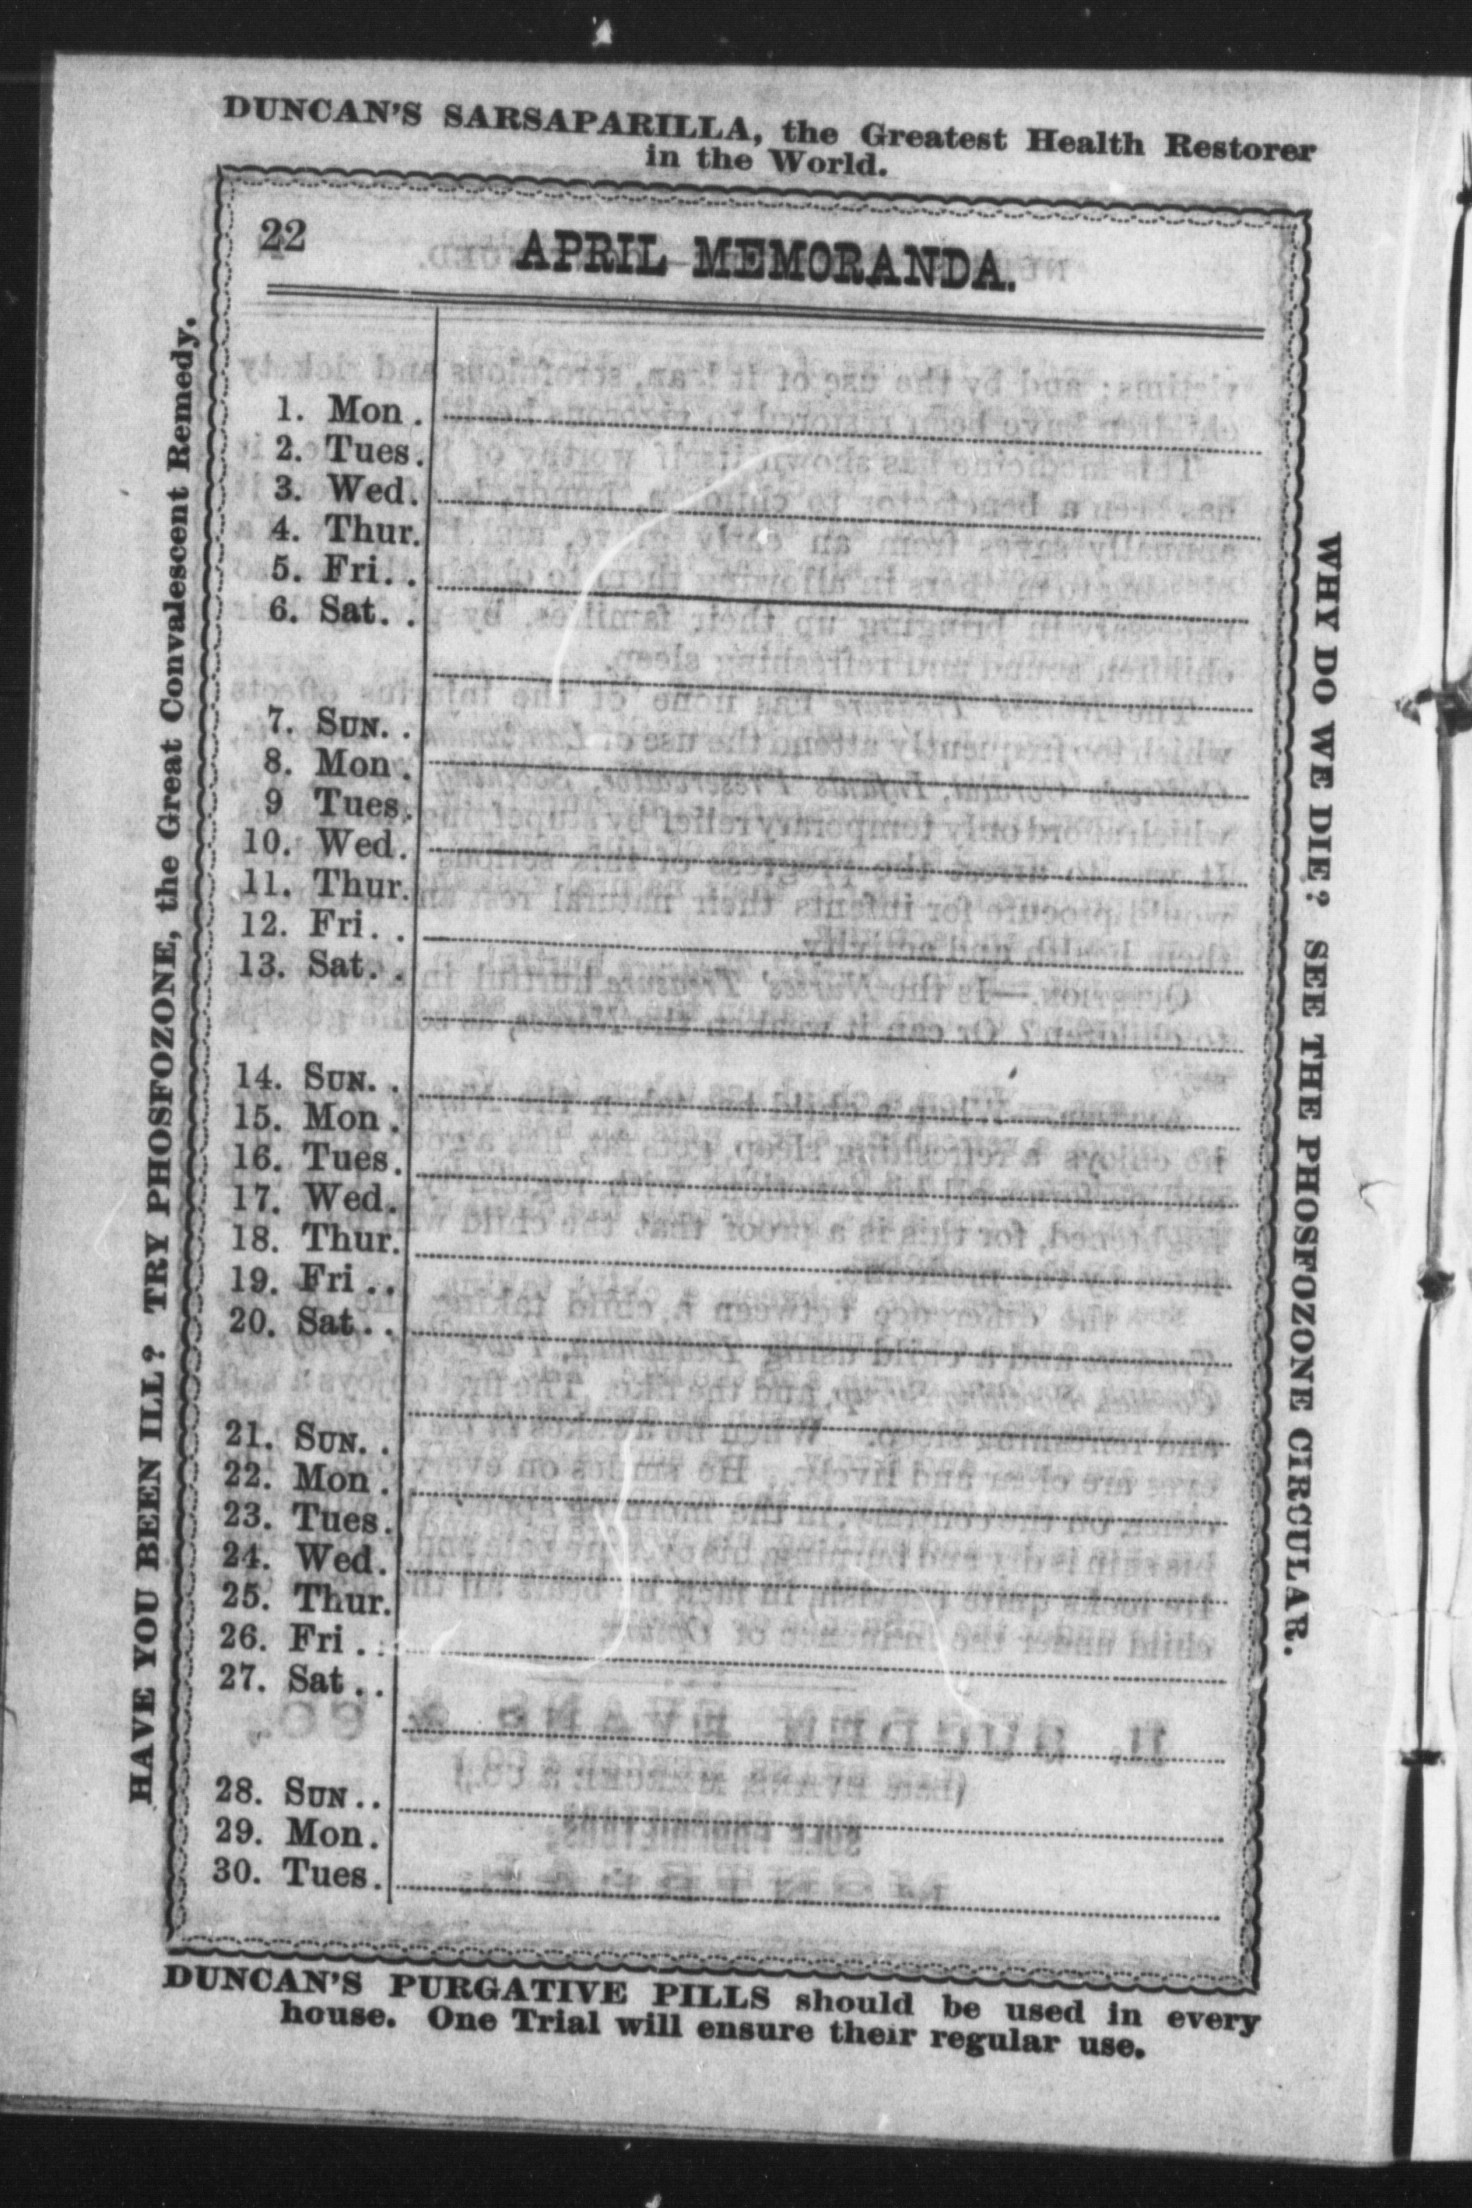 DUNCAN'S SARSAPARILLA, the Greatest Health Restorer
in the World.
22
APRIL MEMORANDA.
1. Mon.
2. Tues.
3. Wed.
4. Thur.
5. Fri..
6. Sat..
7. SUN..
8. Mon.
9 Tues.
10. Wed.
11. Thur.
12. Fri..
13. Sat..
14. SUN..
15. Mon.
16. Tues.
17. Wed.
18. Thur.
19. Fri..
20. Sat..
21. SUN..
22. Mon.
23. Tues.
24. Wed.
25. Thur.
26. Fri..
27. Sat..
28. SUN..
29. Mon.
30. Tues.
HAVE YOU BEEN ILL? TRY PHOSFOZONE, the Great Convalescent Remedy.
WHY DO WE DIE? SEE THE PHOSFOZONE CIRCULAR.
DUNCAN'S PURGATIVE PILLS should be used in every
house. One Trial will ensure their regular use.